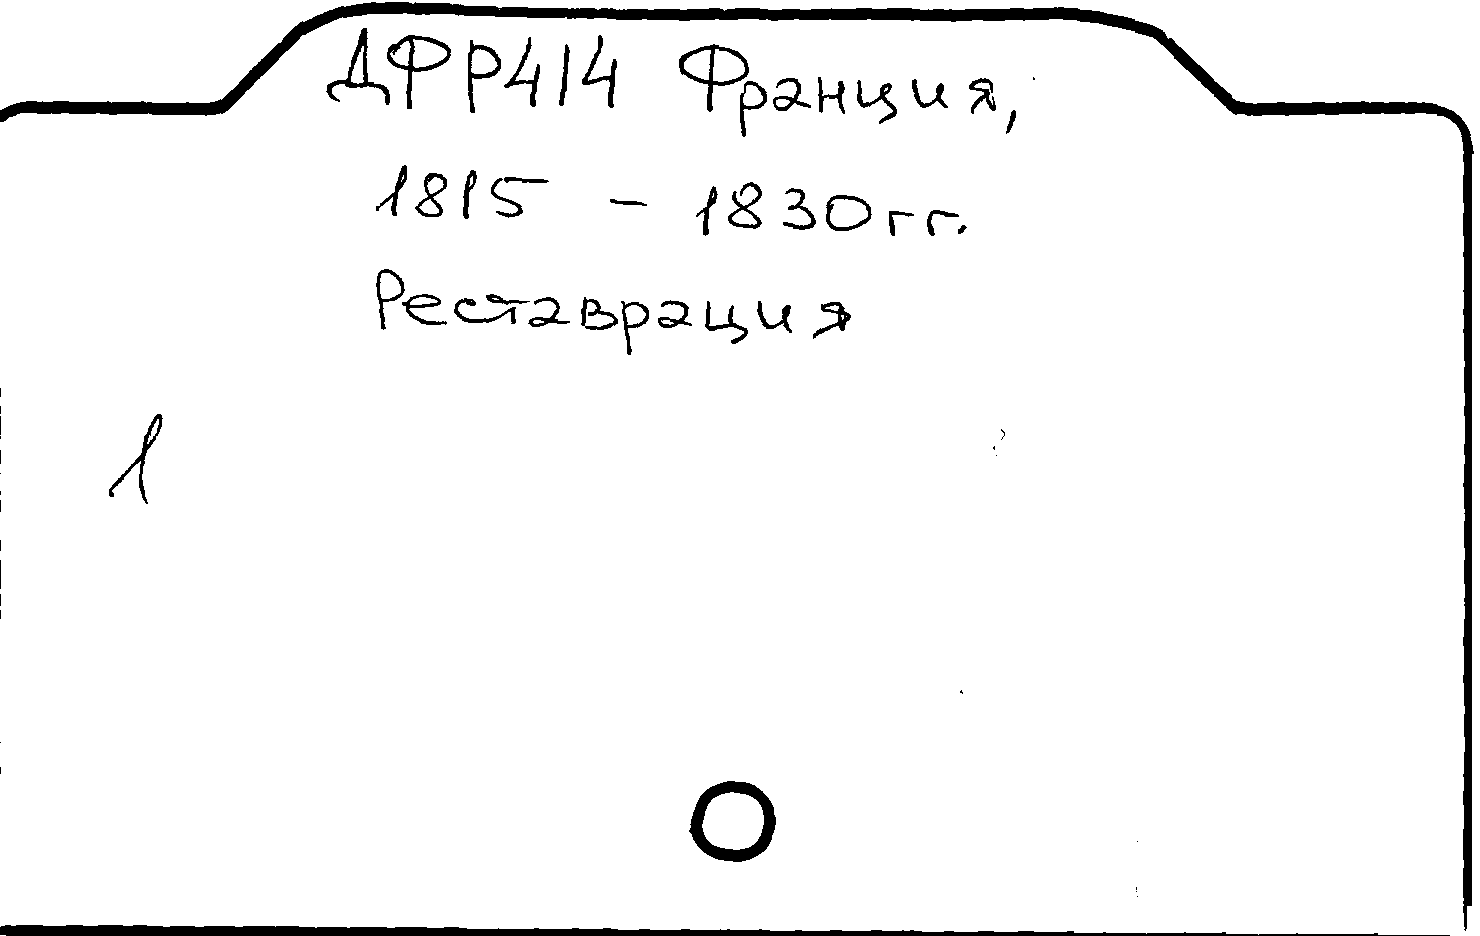 ДФР414 Франция,
1815 – 1830гг.
Реставрация
1